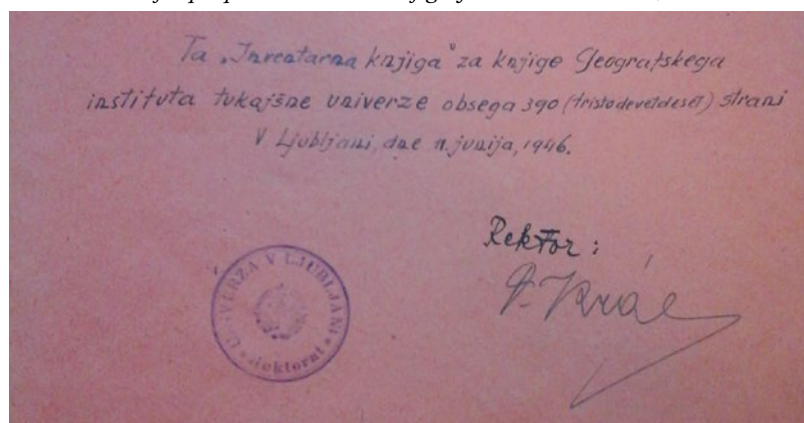 Ta „Inventarna knjiga“ za knjige Geografskega
instituta tukajšne univerze obsega 390 (tristodevetdeset) strani
V Ljubljani, dne 11. junija, 1946.
Rektor:
UNIVERZA V LJUBLJANI
* Rektorat *